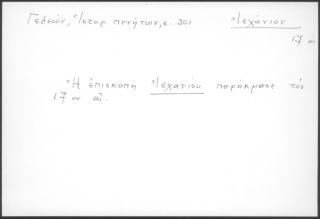 Γεδεών, Ἱστορ πενήτων, σ. 301 Ἰσχάνιον
17 αἰ
Ἡ ἐπισκοπη Ἰσχανίου παρήκμασε τὸν
17 ον αἰ.